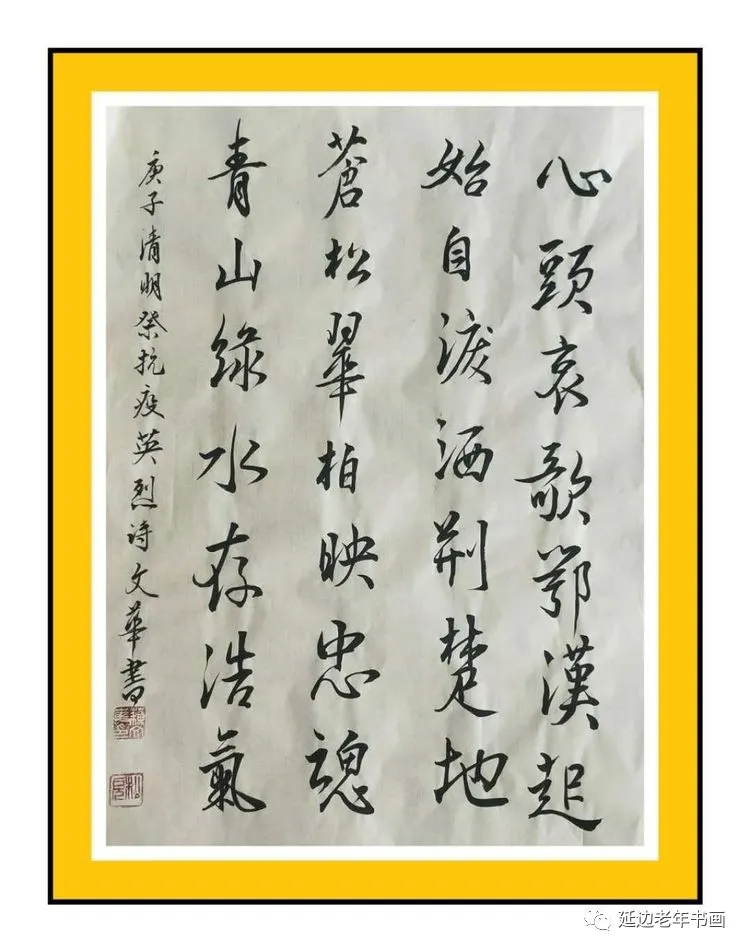 心頭哀歌鄂漢起
始自淚洒荆楚地
蒼松翠柏映忠魂
青山綠水存浩氣
庚子清明祭抗疫英烈诗文華書
延边老年书画